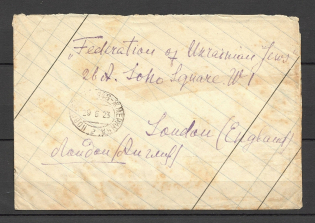 "Federation of Ukrainian Jews"
26A. Soho Square W 1
29 6 23
London (England)
London (Англия)